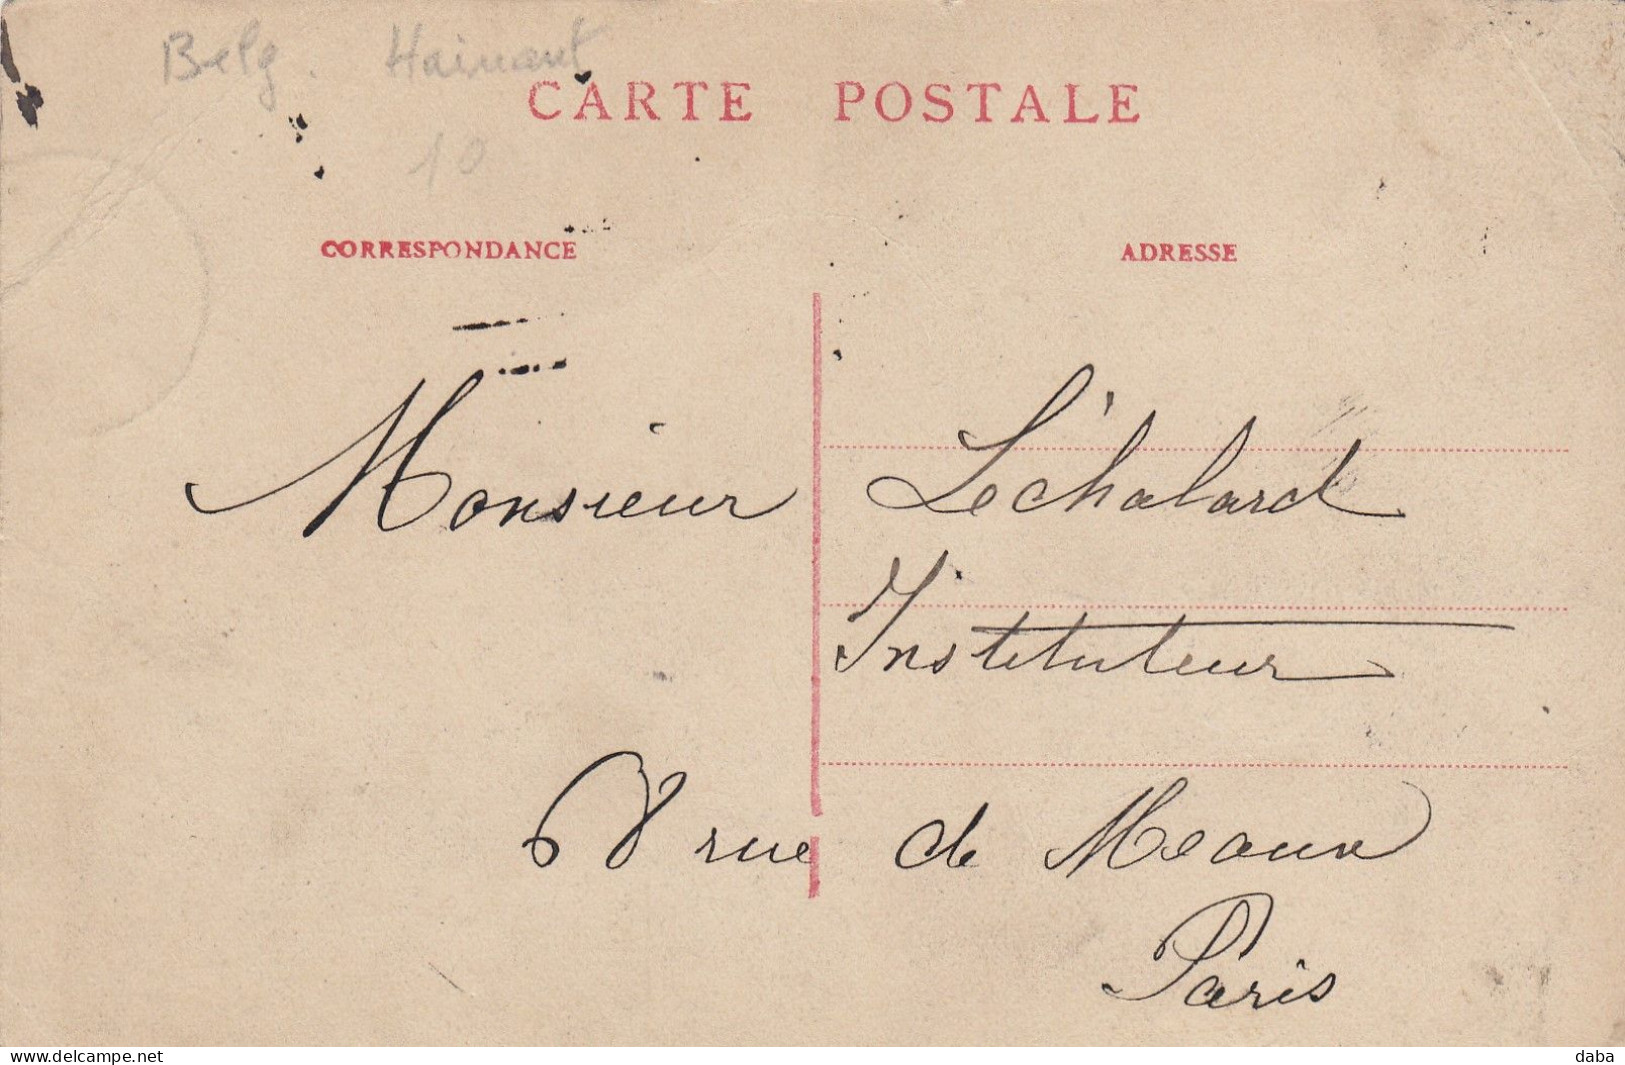 Belg. Hainaut
CARTE POSTALE
10
CORRESPONDANCE ADRESSE
Monsieur Léchalard
Instituteur
68 rue de Meaux
Paris
www.delcampe.net daba